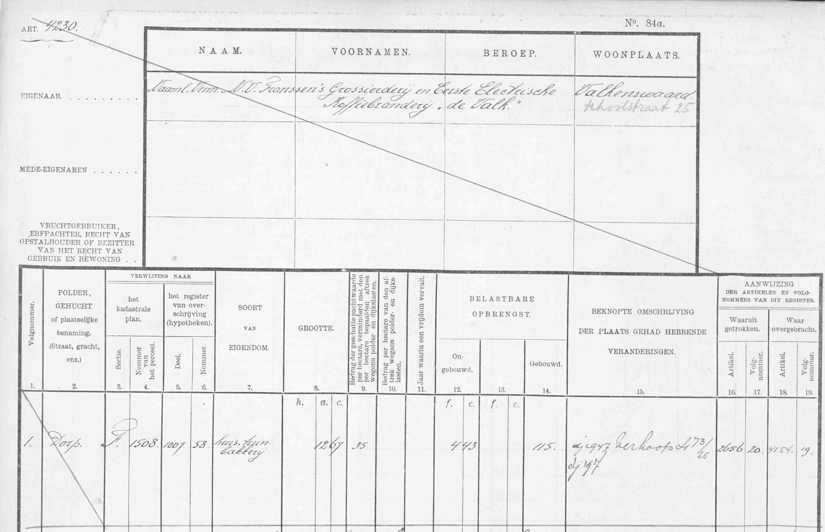 ART. 4230.
Nº. 84a.
NAAM. VOORNAMEN. BEROEP. WOONPLAATS.
EIGENAAR.
Naaml. Venn. N.V. Franssen's Grossierdery en Eerste Electrische Valkenswaard
Koffiebrandery „de Valk." Schoolstraat 25
MEDE-EIGENAREN
VRUCHTGEBRUIKER,
ERFPACHTER, RECHT VAN
OPSTALHOUDER OF BEZITTER
VAN HET RECHT VAN
GEBRUIK EN BEWONING
Volgnommer.
POLDER,
GEHUCHT
of plaatselijke
benaming.
(Straat, gracht,
enz.)
VERWIJZING NAAR
het
kadastrale
plan.
Sectie.
Nommer
van
het perceel.
het register
van over-
schrijving
(hypotheken).
Deel.
Nommer.
SOORT
VAN
EIGENDOM.
GROOTTE.
Bedrag der geschatte pachtwaarde
per hectare, verminderd met den
per hectare bepaalden aftrek
wegens polder- en dijkslasten.
Bedrag per hectare van den af-
trek wegens polder- en dijks-
lasten.
Jaar waarin een vrijdom vervalt.
BELASTBARE
OPBRENGST.
On-
gebouwd.
Gebouwd.
BEKNOPTE OMSCHRIJVING
DER PLAATS GEHAD HEBBENDE
VERANDERINGEN.
AANWIJZING
DER ARTIKELEN EN VOLG-
NOMMERS VAN DIT REGISTER.
Waaruit
getrokken.
Waar
overgebracht.
Artikel.
Volg-
nommer.
Artikel.
Volg-
nommer.
1. 2. 3. 4. 5. 6. 7. 8. 9. 10. 11. 12. 13. 14. 15. 16. 17. 18. 19.
h. a. c. f. c. f. c.
1. Dorp. F. 1508 1007 53. huis, tuin 1267 35 443 115. dj 1947 Verkoop 73/25 2656 20. 4154. 19.
bakkery dj 1937